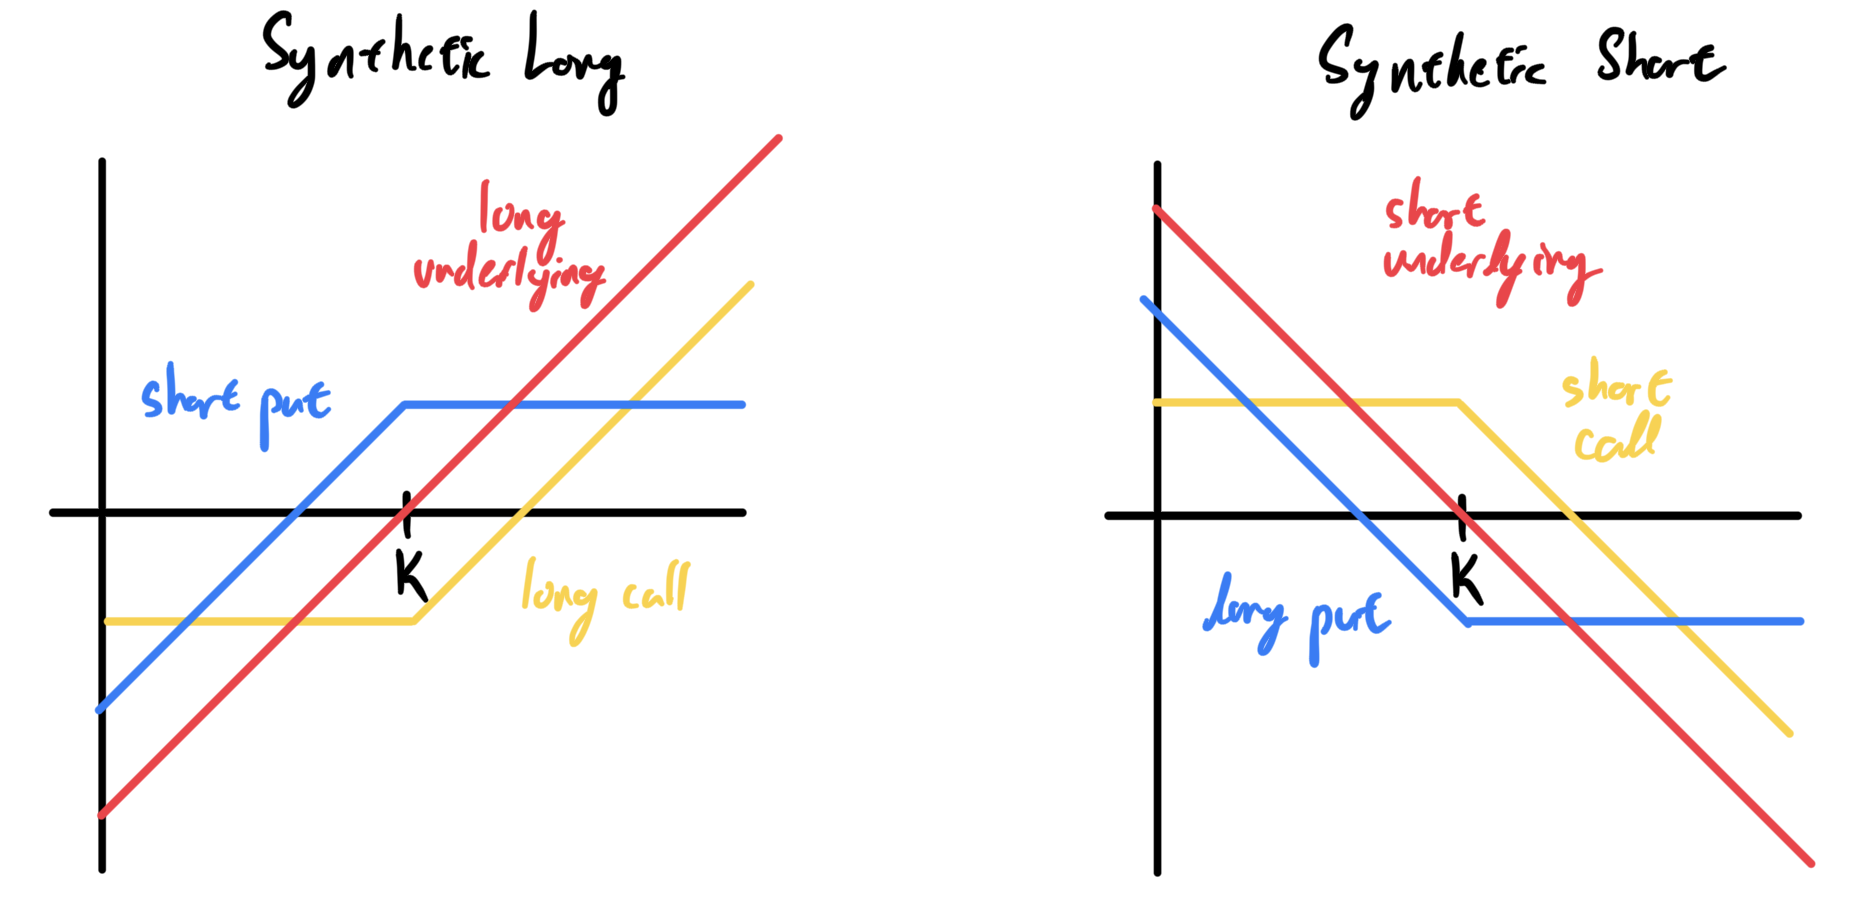 Synthetic Long
long
underlying
short put
K
long call
Synthetic Short
short
underlying
short
call
K
long put